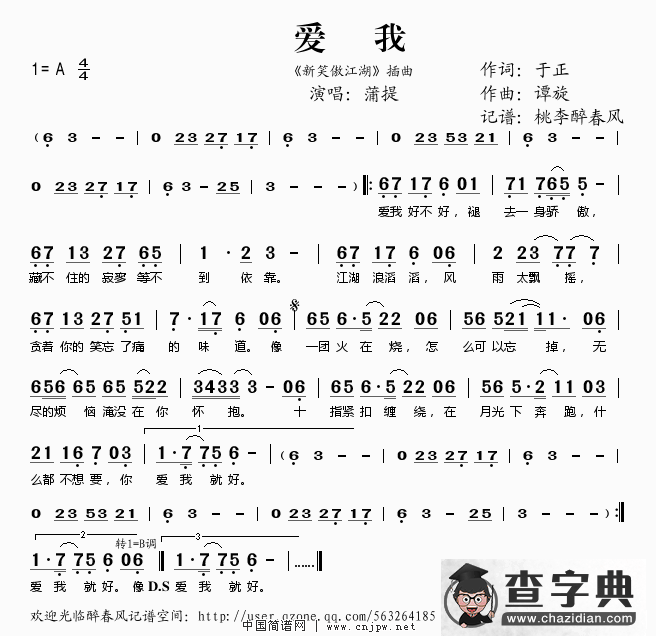 爱 我
1= A 4/4
《新笑傲江湖》插曲
演唱：蒲提
作词：于正
作曲：谭旋
记谱：桃李醉春风
( 6 3 - - | 0 23 27 17 | 6 3 - - | 0 23 53 21 | 6 3 - - |
0 23 27 17 | 6 3 - 25 | 3 - - - ) ‖: 67 17 6 01 | 71 765 5 - |
爱我 好不 好，褪 去一 身骄 傲，
67 13 27 65 | 1 · 2 3 - | 67 17 6 06 | 2 23 77 7 |
藏不 住的 寂寥 等不 到 依 靠。 江湖 浪滔 滔，风 雨 太飘 摇，
67 13 27 51 | 7 · 17 6 06 | 65 6·5 22 06 | 56 521 11· 06 |
贪着 你的 笑忘 了痛 的 味 道。像 一团 火 在 烧，怎 么可 以忘 掉，无
656 65 65 522 | 3433 3 - 06 | 165 6·5 22 06 | 56 5·2 11 03 |
尽的烦 恼 淹没 在 你 怀 抱。 十 指紧 扣 缠 绕，在 月光 下 奔 跑，什
1
21 16 7 03 | 1·7 75 6 - | ( 6 3 - - | 0 23 27 17 | 6 3 - - |
么都 不想 要，你 爱 我 就 好。
0 23 53 21 | 6 3 - - | 0 23 27 17 | 6 3 - 25 | 3 - - - ) :‖
2 转1=B调 3
1·7 75 6 06 ‖ 1·7 75 6 - | ……‖
爱 我 就 好。像 D.S 爱 我 就 好。
欢迎光临醉春风记谱空间：http://user.qzone.qq.com/563264185
中国简谱网 ： www.cnjpw.net
查字典
www.chazidian.com